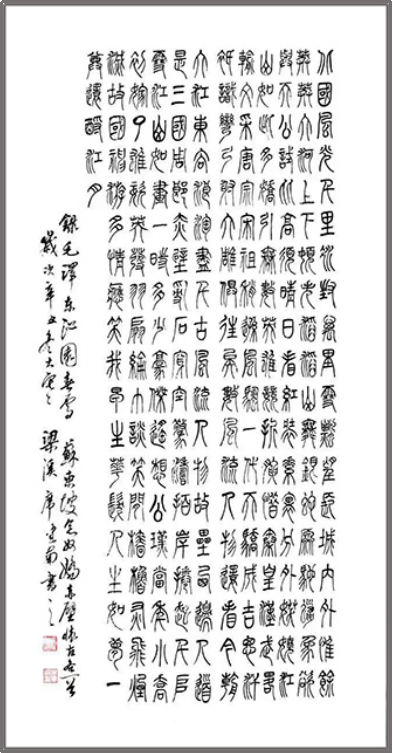 北國風光千里冰封萬里雪飄望長城內外惟餘
莽莽大河上下頓失滔滔山舞銀蛇原馳蠟象欲
與天公試比高須晴日看紅裝素裹分外妖嬈江
山如此多嬌引無數英雄競折腰惜秦皇漢武略
輸文采唐宗宋祖稍遜風騷一代天驕成吉思汗
祇識彎弓射大雕俱往矣數風流人物還看今朝
大江東去浪淘盡千古風流人物故壘西邊人道
是三國周郎赤壁亂石穿空驚濤拍岸捲起千堆
雪江山如畫一時多少豪傑遙想公瑾當年小喬
初嫁了雄姿英發羽扇綸巾談笑間檣櫓灰飛煙
滅故國神游多情應笑我早生華髮人生如夢一
尊還酹江月
錄毛澤東沁園春雪 蘇東坡念奴嬌赤壁懷古各一首
歲次辛丑冬大雪 梁溪席書之